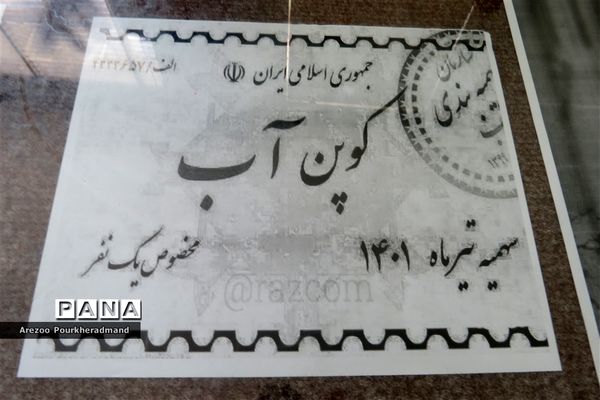 جمهوری اسلامی ایران
الف/۲۲۲۲۶۵۷
سازمان
سهمیه بندی
آب
۱۳۹۱
کوپن آب
سهمیه تیرماه ۱۴۰۱
مخصوص یک نفر
@razcom
PANA
Arezoo Pourkheradmand